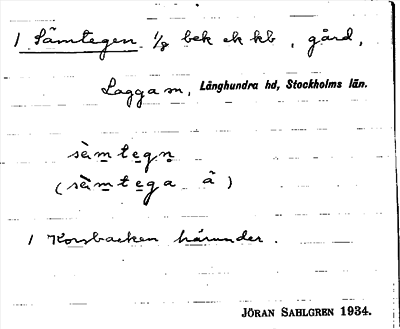 1 Sämtegen. 1/8 bek ek kb, gård,
Laggam, Långhundra hd, Stockholms län.
sä̀m̥tegn̥
(sä̀mtega â)
1 Korsbacken härunder.
JÖRAN SAHLGREN 1934.